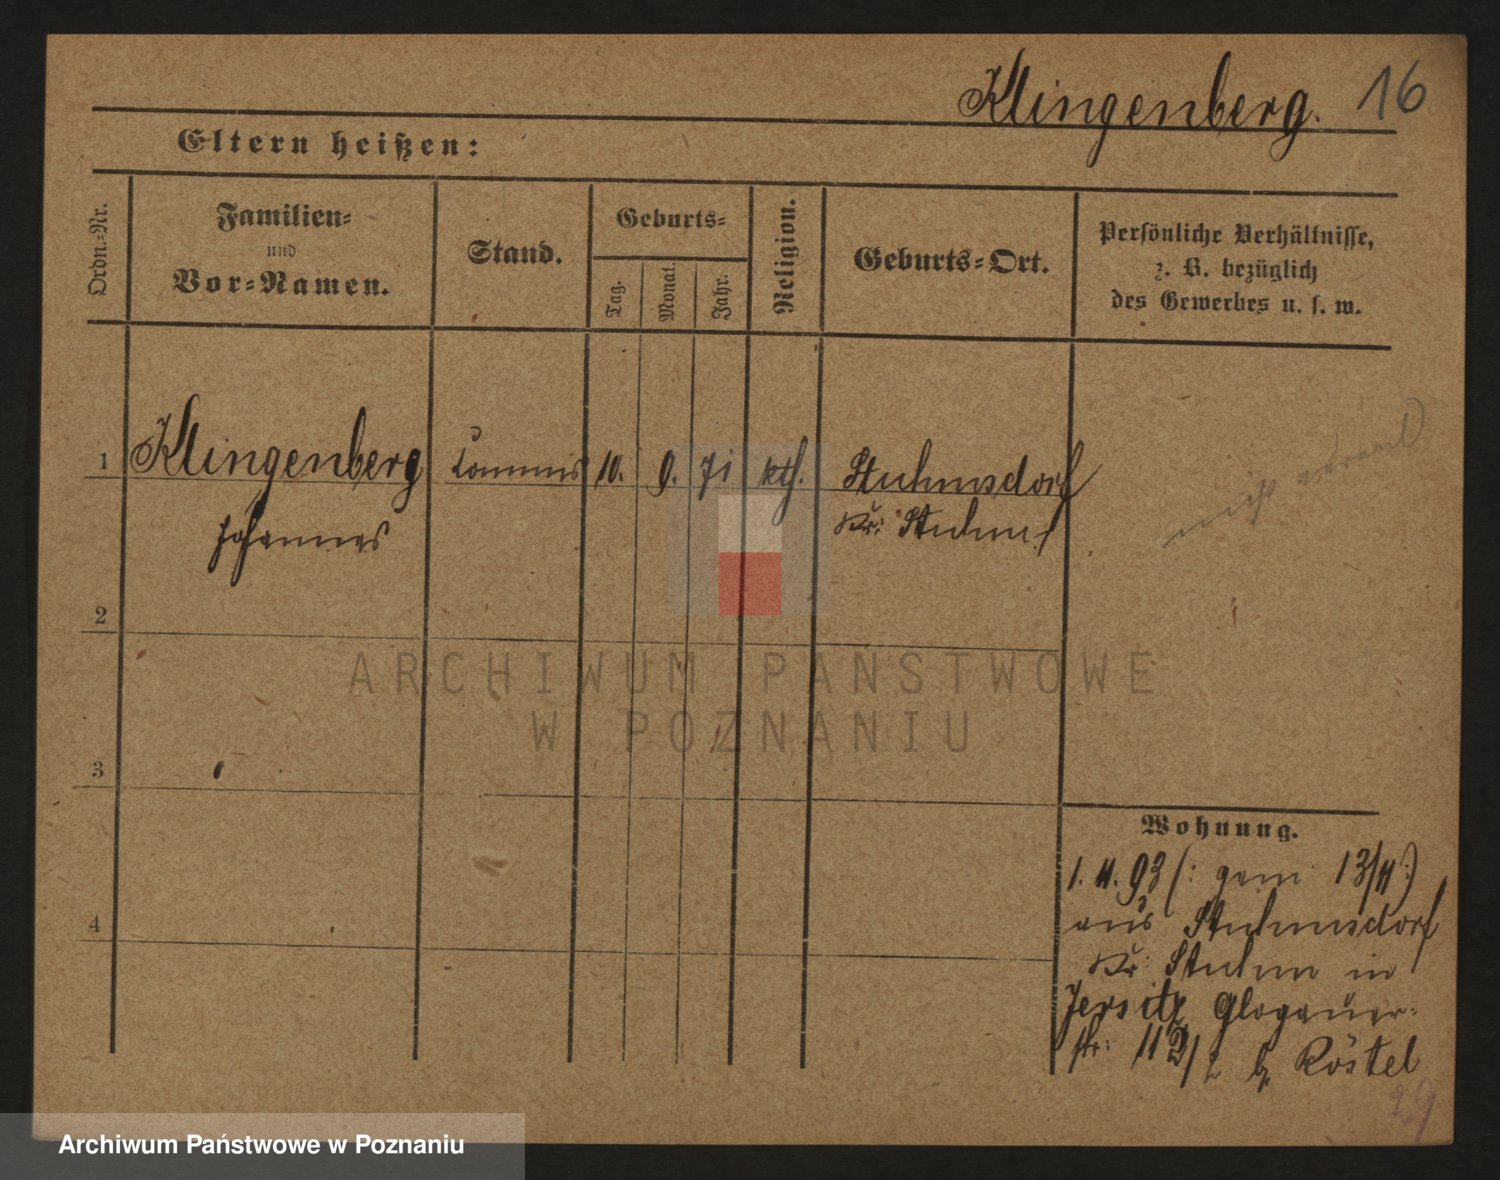 Klingenberg. 16
Eltern heißen:
Ordn.=Nr.
Familien=
und
Vor=Namen.
Stand.
Geburts=
Tag.
Monat.
Jahr.
Religion.
Geburts=Ort.
Persönliche Verhältnisse,
z. B. bezüglich
des Gewerbes u. s. w.
1 Klingenberg Commis 10. 9. 71 kth. Stuhmsdorf
Johannes Kr: Stuhm
nicht
2
3
4
Wohnung.
1. 11. 93 (: gem: 13/11 :)
aus Stuhmsdorf
Kr: Stuhm in
Jersitz Glogauer=
str: 112/2 b. Röstel
29
ARCHIWUM PAŃSTWOWE
W POZNANIU
Archiwum Państwowe w Poznaniu